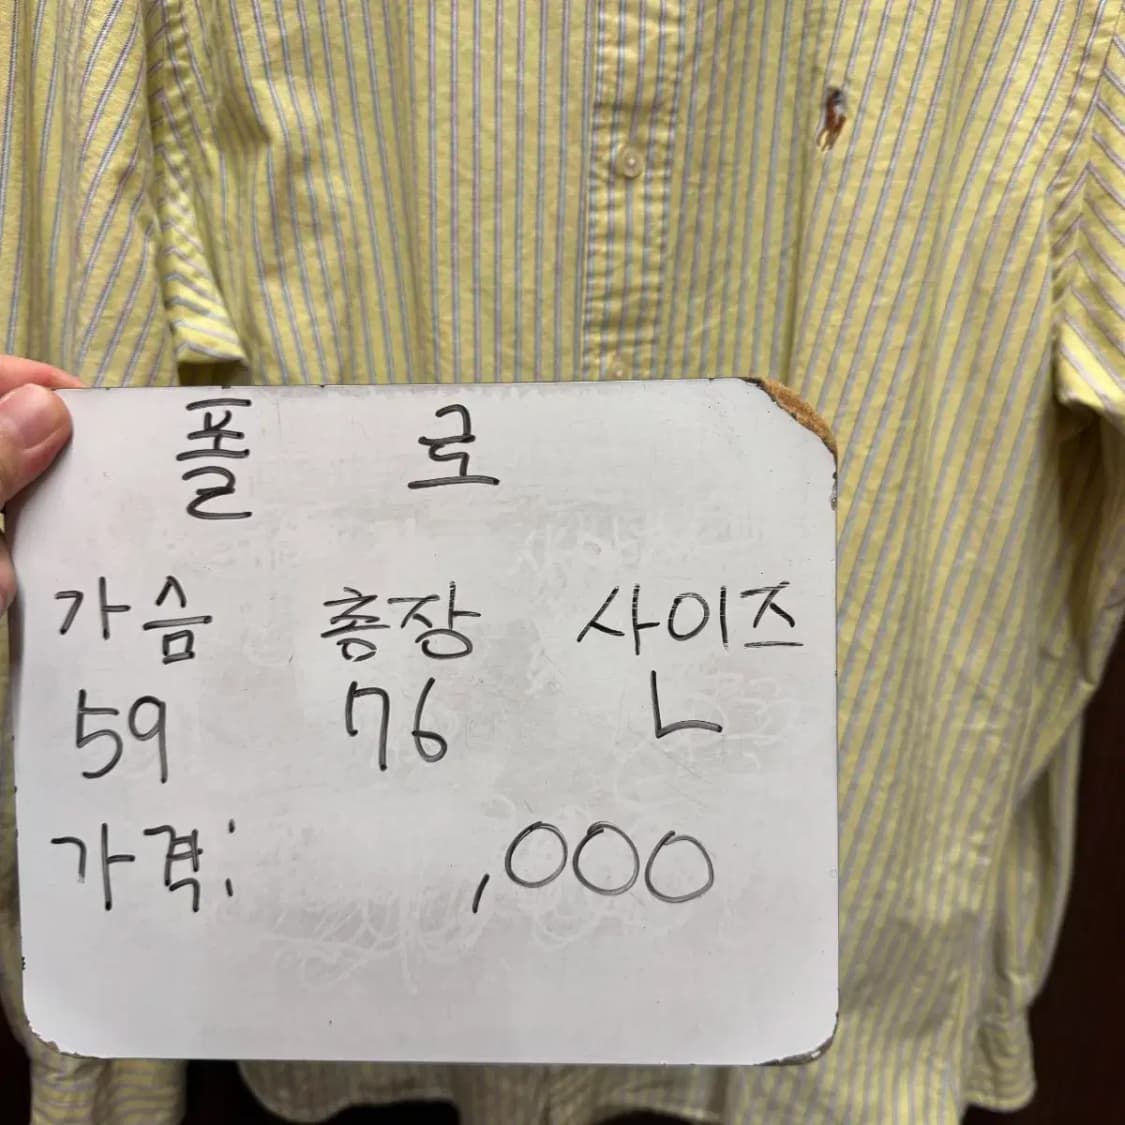 폴 로
가슴 총장 사이즈
59 76 L
가격: ,000